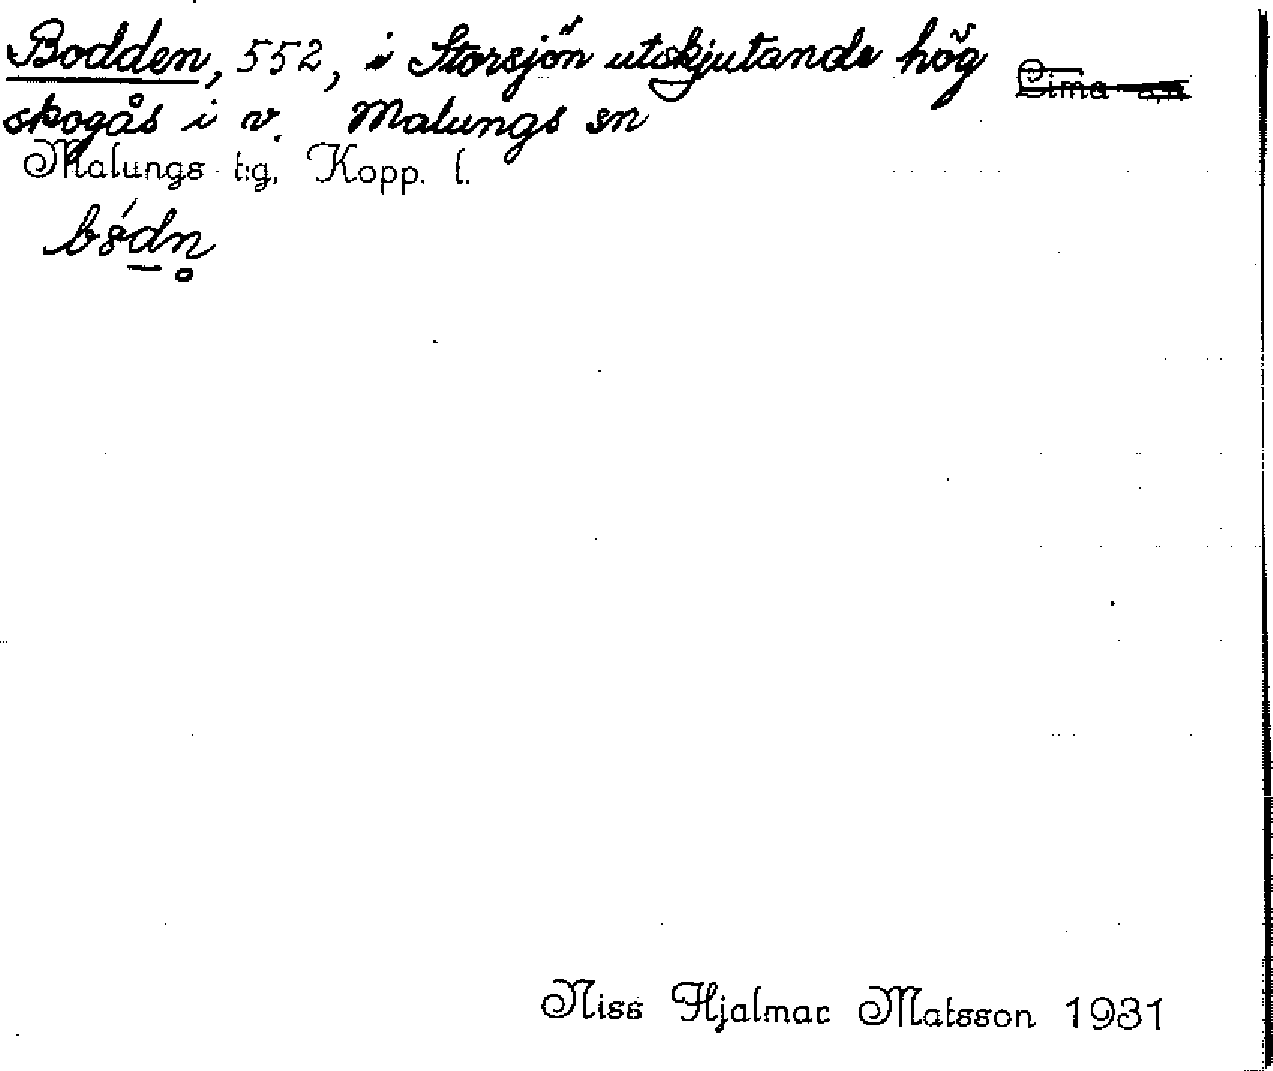 Bodden, 552, i Storsjön utskjutande hög
Lima sn
skogås i v. Malungs sn
Malungs tg, Kopp. l.
Niss Hjalmar Matsson 1931